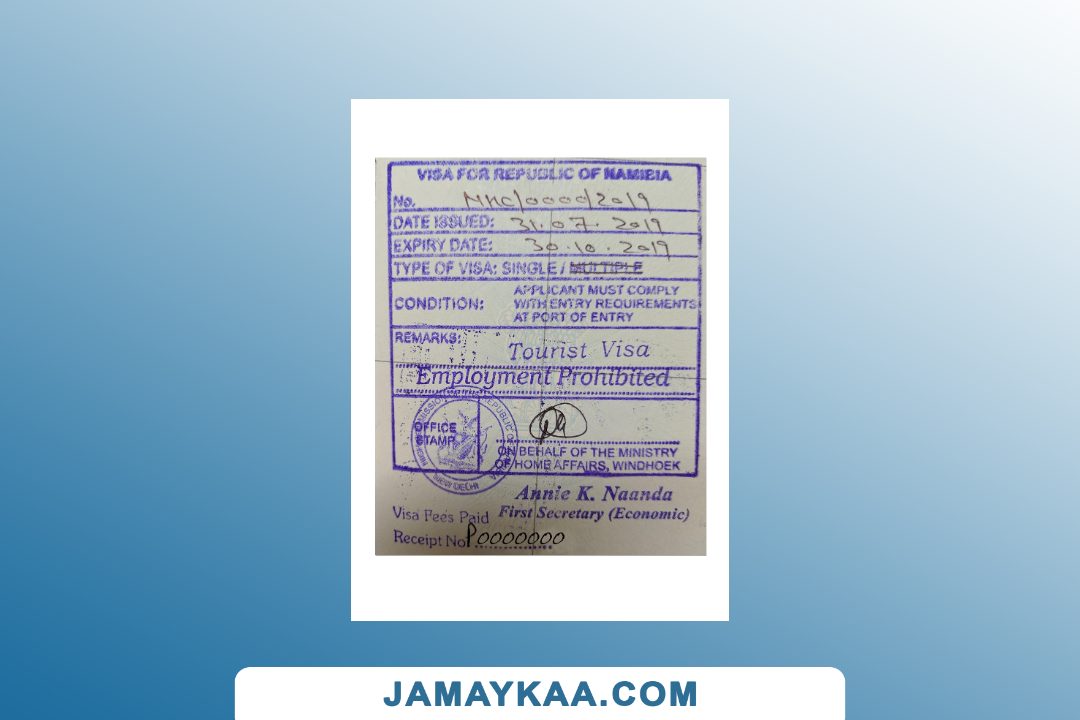 VISA FOR REPUBLIC OF NAMIBIA
No. NHC/0000/2019
DATE ISSUED: 31.07.2019
EXPIRY DATE: 30.10.2019
TYPE OF VISA: SINGLE / MULTIPLE
CONDITION: APPLICANT MUST COMPLY
WITH ENTRY REQUIREMENTS
AT PORT OF ENTRY
REMARKS:
Tourist Visa
Employment Prohibited
OFFICE
STAMP
NEW DELHI
ON BEHALF OF THE MINISTRY
OF HOME AFFAIRS, WINDHOEK
Annie K. Naanda
First Secretary (Economic)
Visa Fees Paid
Receipt No P0000000
JAMAYKAA.COM